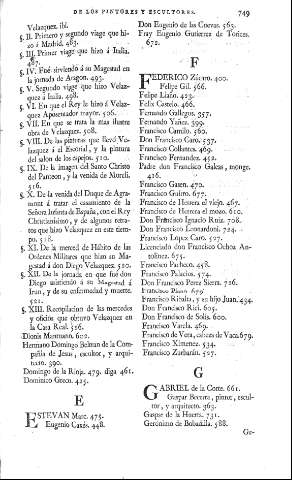 DE LOS PINTORES Y ESCULTORES. 749
Velazquez. ibi.
§. II. Primero y segundo viage que hizo á Madrid. 463.
§. III. Primer viage que hizo á Italia. 487.
§. IV. Fué sirviendo á su Magestad en la jornada de Aragon. 493.
§. V. Segundo viage que hizo Velazquez á Italia. 498.
§. VI. En que el Rey le hizo á Velazquez Aposentador mayor. 506.
§. VII. En que se trata la mas ilustre obra de Velazquez. 508.
§. VIII. De las pinturas que llevó Velazquez á el Escorial, y la pintura del salon de los espejos. 510.
§. IX. De la imagen del Santo Christo del Panteon, y la venida de Moreli. 516.
§. X. De la venida del Duque de Agramont á tratar el casamiento de la Señora Infanta de España, con el Rey Christianísimo, y de algunos retratos que hizo Velazquez en este tiempo. 518.
§. XI. De la merced de Hábito de las Ordenes Militares que hizo su Magestad á don Diego Velazquez. 520.
§. XII. De la jornada en que fué don Diego asistiendo á su Magestad á Irun, y de su enfermedad y muerte. 521.
§. XIII. Recopilacion de las mercedes y oficios que obtuvo Velazquez en la Casa Real. 526.
Dionis Mantuano. 602.
Hermano Domingo Beltran de la Compañia de Jesus, escultor, y arquitecto. 390.
Domingo de la Rioja. 479. diga 461.
Dominico Greco. 425.
E
ESTEVAN Marc. 475.
Eugenio Caxés. 448.
Don Eugenio de las Cuevas. 565.
Fray Eugenio Gutierrez de Torices. 672.
F
FEDERICO Zúcaro. 400.
Felipe Gil. 566.
Felipe Liaño. 423.
Felix Castelo. 466.
Fernando Gallegos. 357.
Fernando Yañez. 399.
Francisco Camilo. 560.
Don Francisco Caro. 537.
Francisco Collantes. 469.
Francisco Fernandez. 452.
Padre don Francisco Galeas, monge. 416.
Francisco Gasen. 470.
Francisco Guirro. 677.
Francisco de Herrera el viejo. 467.
Francisco de Herrera el mozo. 610.
Don Francisco Ignacio Ruiz. 708.
Don Francisco Leonardoni. 724.
Francisco Lopez Caro. 527.
Licenciado don Francisco Ochoa Antolinez. 675.
Francisco Pacheco. 458.
Francisco Palacios. 574.
Don Francisco Perez Sierra. 726.
Francisco Ribalta, y su hijo Juan. 434.
Don Francisco Rici. 605.
Don Francisco de Solis. 600.
Francisco Varela. 469.
Francisco de Vera, cabeza de Vaca. 679.
Francisco Ximenez. 534.
Francisco Zurbarán. 527.
G
GABRIEL de la Corte. 661.
Gaspar Becerra, pintor, escultor, y arquitecto. 363.
Gaspar de la Huerta. 731.
Gerónimo de Bobadilla. 588.
Ge-